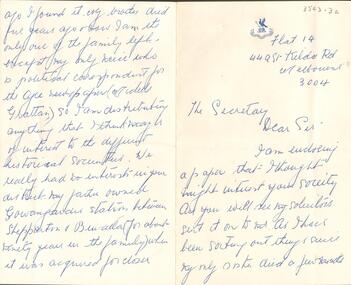 3563.32
Flat 14
449 St Kilda Rd
Melbourne
3004
The Secretary
Dear Sir
I am enclosing
a paper that I thought
might interest your society
As you will see my solicitors
sent it on to me As I have
been sorting out things since
my only sister died a few weeks
ago I found it. My brother died
five years ago & now I am the
only one of the family left.
except my only niece who
is political correspondent for
the Age newspaper (Michelle
Grattan) so I am distributing
anything that I think may be
of interest to the different
historical societies. We
really had no interests in your
district. My father owned
Gowangardie station between
Shepparton & Benalla (for about
ninety years in the family) when
it was acquired for closer